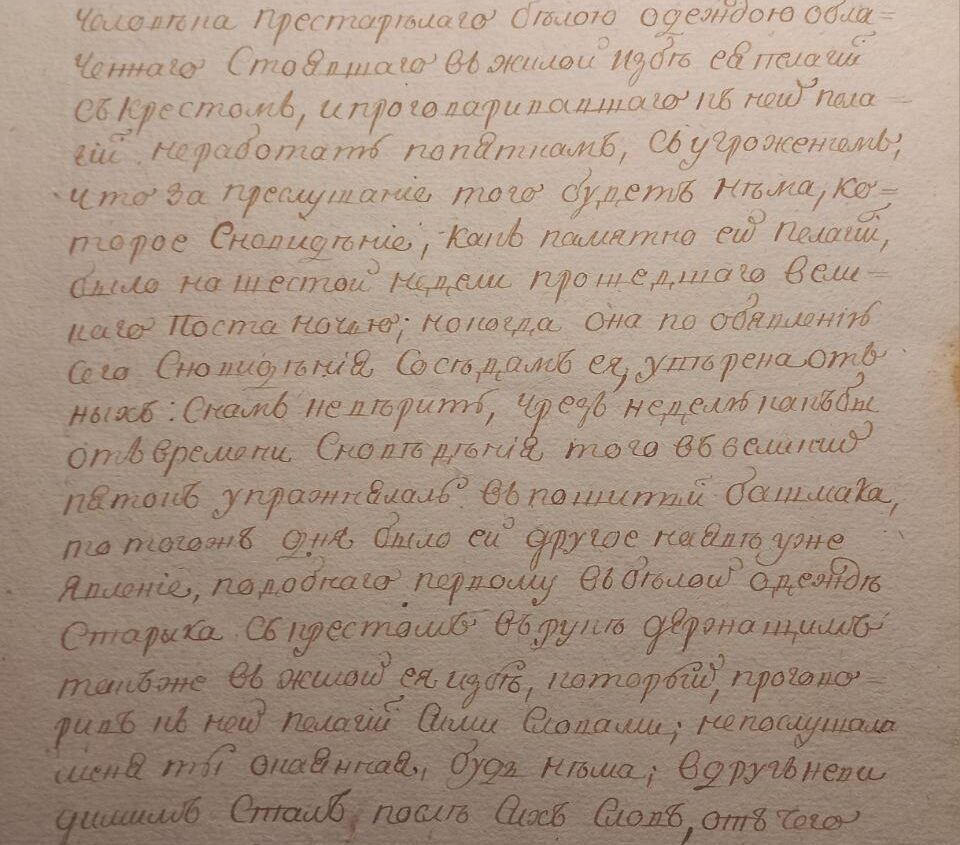 человѣка престарѣлаго бѣлою одеждою обла=
ченнаго Стоявшаго въ жилой избѣ ея пелагіи
съ крестомъ, и проговаривавшаго къ ней пела=
гіи неработать попяткамъ, съ угроженіемъ,
что за преслушаніе того будетъ нѣма, ко=
торое Сновидѣніе, какъ памятно ей пелагіи,
было на шестой недели прошедшаго вели=
каго Поста ночью; но когда она по объявленіѣ
сего Сновидѣнія Сосѣдамъ ея, увѣрена отъ
ныхъ: Снамъ невѣрить, чрезъ неделю какъ бы
отъ времени Сновѣдѣнія того въ великий
пятокъ упражнялась въ пошитіи башмака,
то тогожъ дня было ей другое наявѣ уже
явленіе, подобнаго первому въ бѣлой одеждѣ
Старыка съ крестомъ въ рукѣ держащимъ
такъже въ жилой ея избѣ, который, прогово=
рилъ къ ней пелагіи Сими Словами; непослушала
меня ты окаянная, будь нѣма; вдругъ неви
димимъ Сталъ послѣ Сихъ Словъ, отъ чего